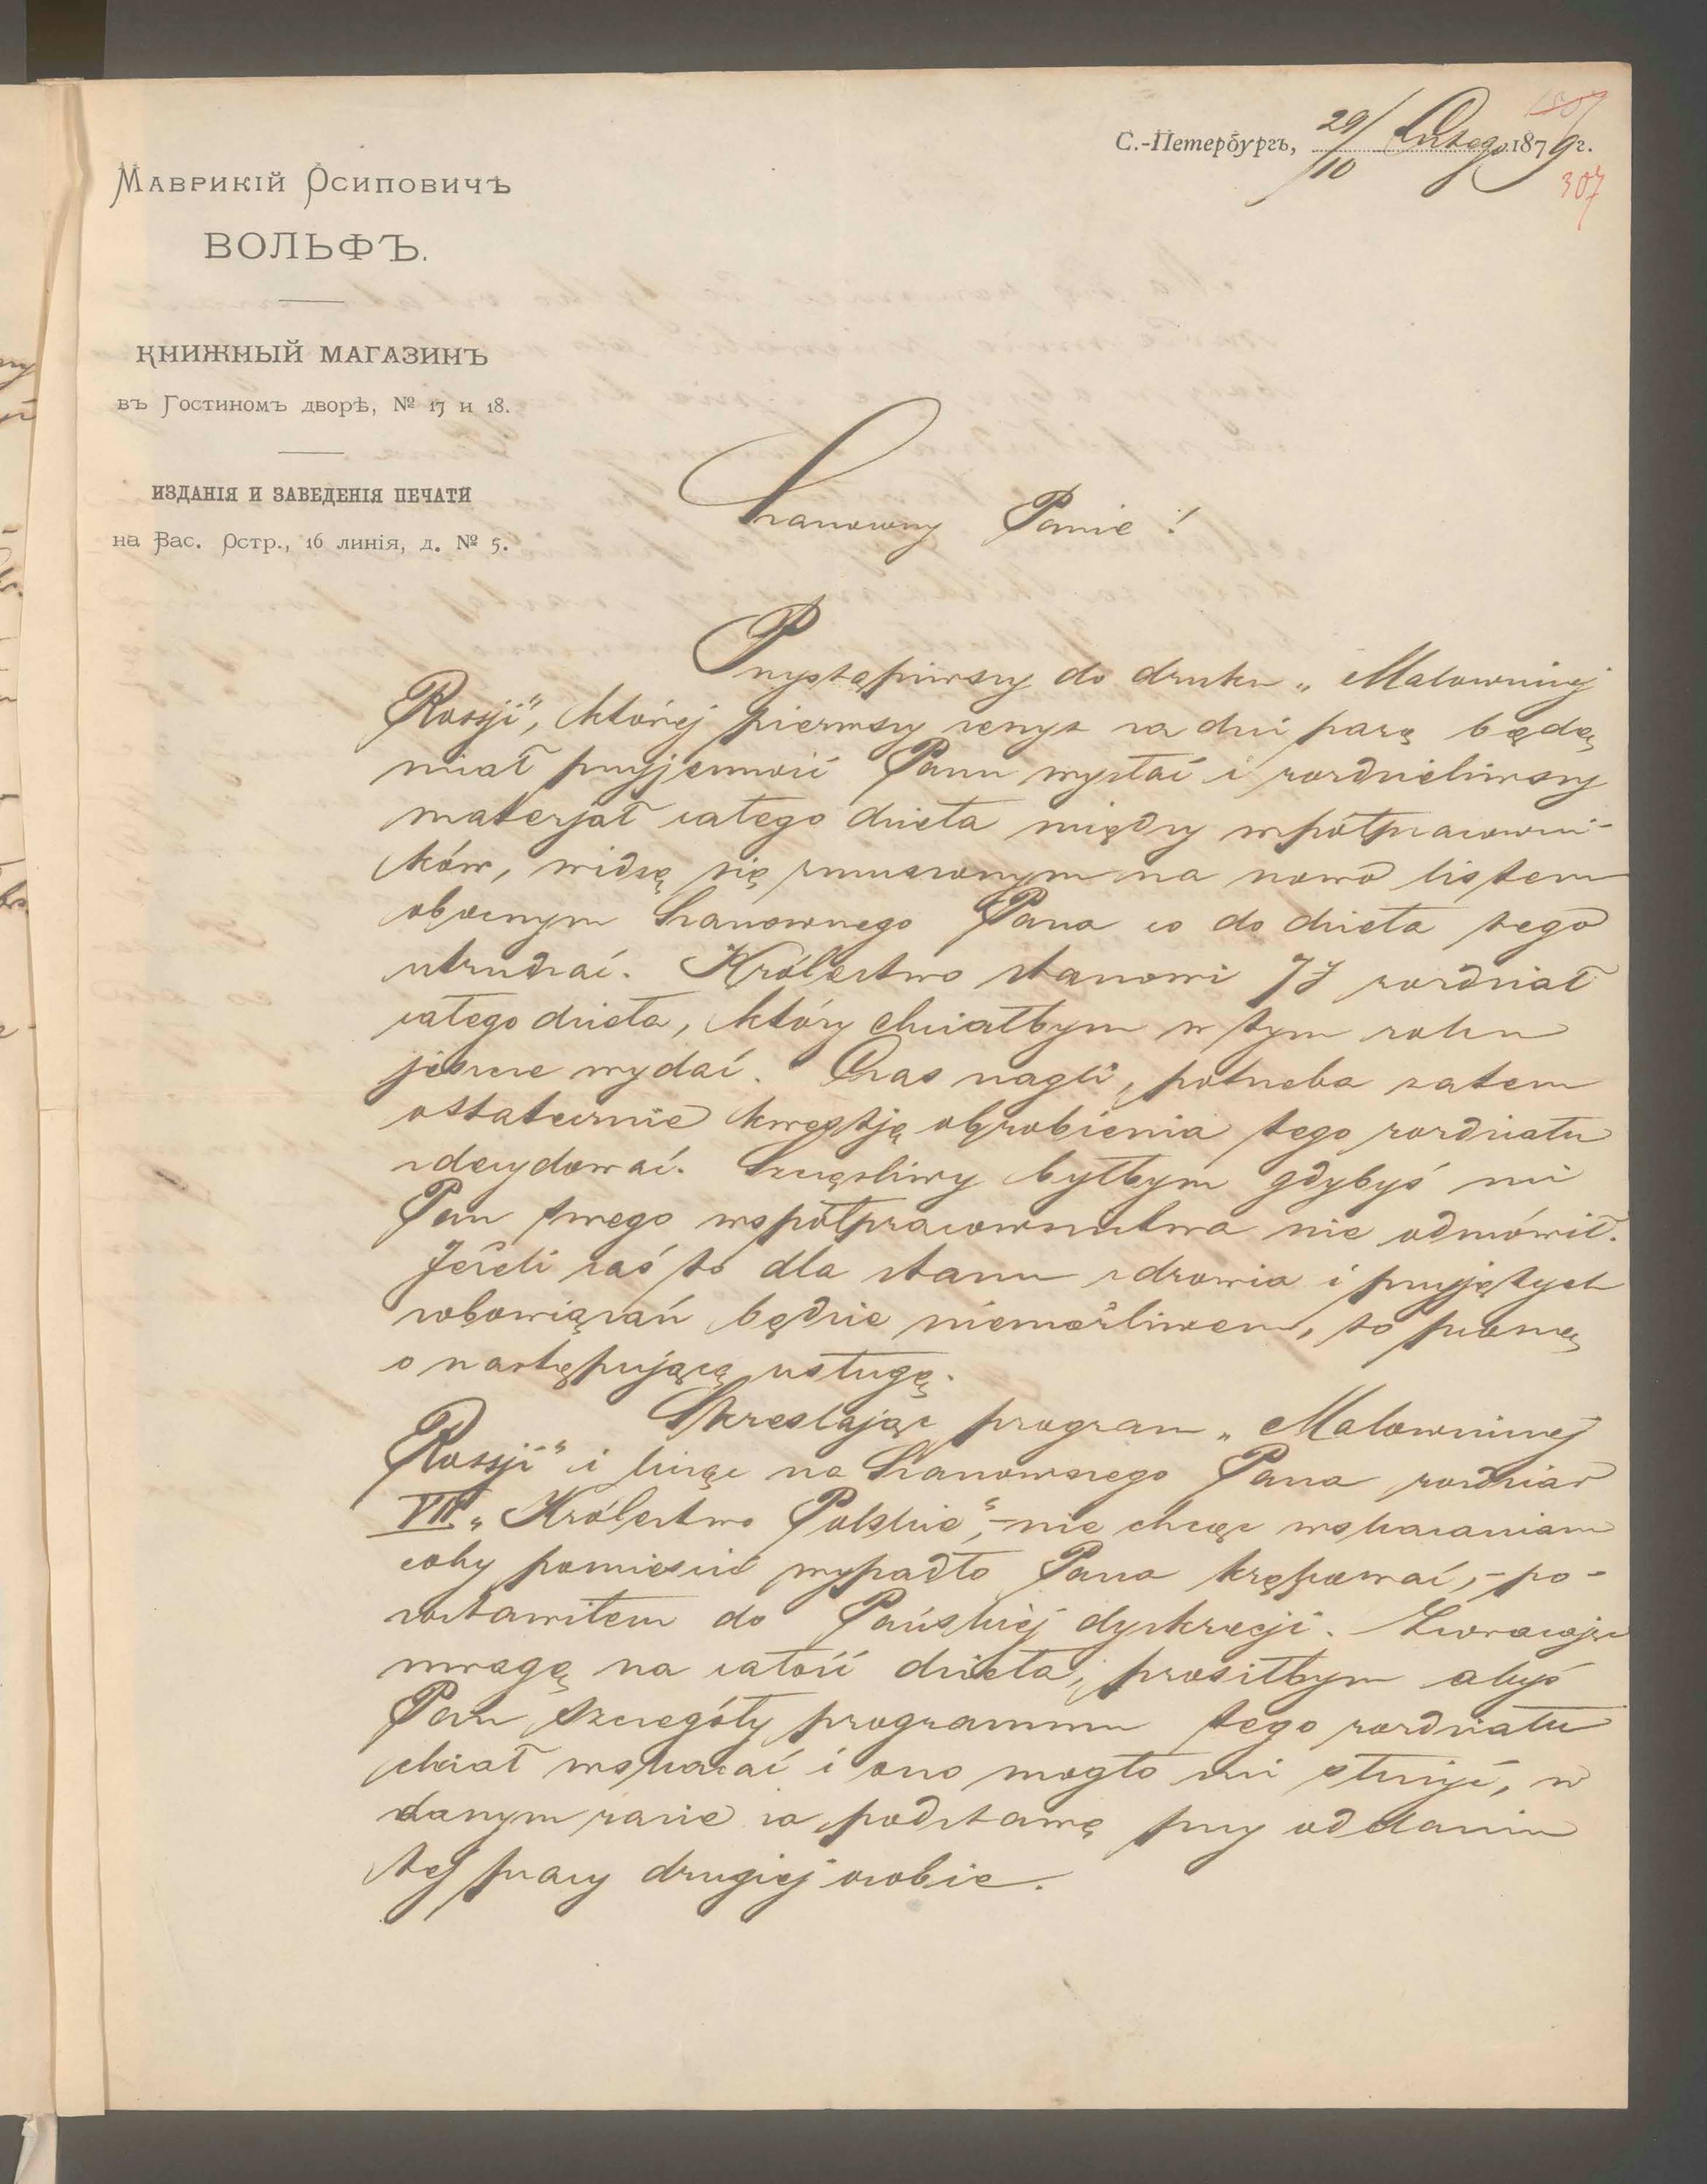 С.-Петербургъ, 29/10 Lutego 1879 г.
307
307
Маврикій Осиповичъ
ВОЛЬФЪ.
КНИЖНЫЙ МАГАЗИНЪ
въ Гостиномъ дворѣ, № 17 и 18.
ИЗДАНІЯ И ЗАВЕДЕНІЯ ПЕЧАТИ
на Вас. Остр., 16 линія, д. № 5.
Szanowny Panie!
Przystąpiwszy do druku „Malowniczej
Rossji", której pierwszy zeszyt za dni parę będę
miał przyjemność Panu wysłać i rozdzieliwszy
materjał całego dzieła między współpracowni-
ków, widzę się zmuszonym na nowo listem
obecnym Szanownego Pana co do dzieła tego
utrudzać. Królestwo stanowi rozdział
całego dzieła, który chciałbym w tym roku
jeszcze wydać. Czas nagli, potrzeba zatem
ostatecznie kwestję obrobienia tego rozdziału
zdecydować. Szczęśliwy byłbym gdybyś mi
Pan swego współpracownictwa nie odmówił.
Jeżeli zaś to dla stanu zdrowia i przyjętych
zobowiązań będzie niemożliwem, to proszę
o następującą usługę.
Skreslając program „Malowniczej
Rossji" i licząc na Szanownego Pana rozdział
VII „Królestwo Polskie",- nie chcąc wskazaniem
coby pomieścić wypadło Pana krępować, - po-
zostawiłem do Pańskiej dyskrecji. Zwracając
uwagę na całość dzieła, prosiłbym abyś
Pan szczegóły programmu tego rozdziału
chciał wskazać i ono mogło mi służyć, w
danym razie za podstawę przy oddaniu
tej pracy drugiej osobie.